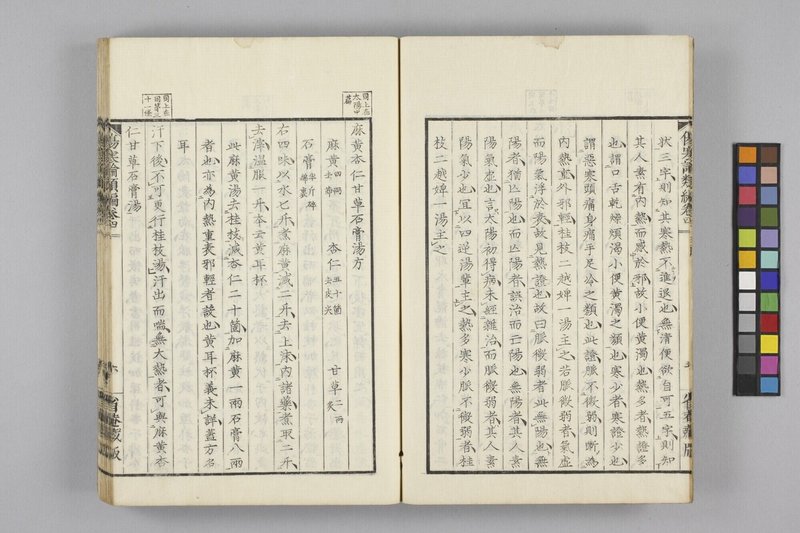 狀三字則知其寒熱不進退也無清便欲自可五字則知
其人素有内熱而感於邪故小便黄濁也熱多者熱證多
也謂口舌乾燥煩渴小便黄濁之類也寒少者寒證少也
謂惡寒頭痛身痛手足冷之類也此證脈不微弱則斷為
内熱重外邪輕桂枝二越婢一湯主之若脈微弱者氣虚
而陽氣浮於表故見熱證也故曰脈微弱者此無陽也無
陽者猶亡陽也而亡陽者誤治而亡陽也無陽者其人素
陽氣虚也言太陽初得病未經雜治而脈微弱者其人素
陽氣少也宜以四逆湯輩主之熱多寒少脈不微弱者桂
枝二越婢一湯主之
傷寒論類編卷四
省菴藏版
同上在太陽中篇
麻黄杏仁甘草石膏湯方
麻黄四兩去節 杏仁五十箇去皮尖 甘草二兩炙
石膏半斤碎綿裹
右四味以水七升煮麻黄減二升去上沫内諸藥煮取二升
去滓温服一升本云黄耳杯
此麻黄湯去桂枝減杏仁二十箇加麻黄一兩石膏八兩
者也亦為内熱重表邪輕者設也黄耳杯義未詳蓋方名
耳
同上在
十一條
汗下後不可更行桂枝湯汗出而喘無大熱者可與麻黄杏
仁甘草石膏湯
傷寒論類編卷四
省菴藏版